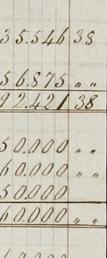 35.546 38
56.875 〃 〃
92.421 38
50.000 〃 〃
60.000 〃 〃
50.000
60.000 〃 〃